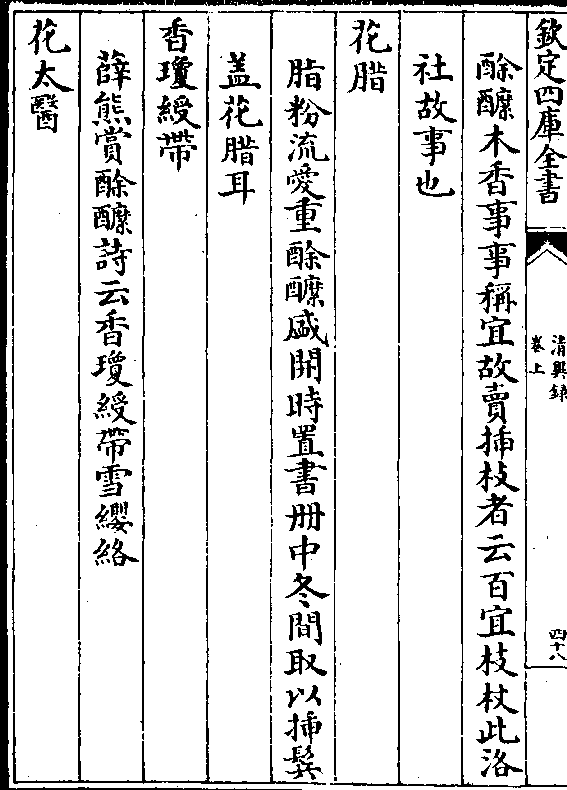 欽定四庫全書
清異錄
卷上
四十八
酴醿木香事事稱宜故賣揷枝者云百宜枝杖此洛
社故事也
花腊
脂粉流愛重酴醿盛開時置書册中冬間取以揷鬂
盖花腊耳
香瓊綬帶
薛熊賞酴醿詩云香瓊綬帶雪纓絡
花太醫